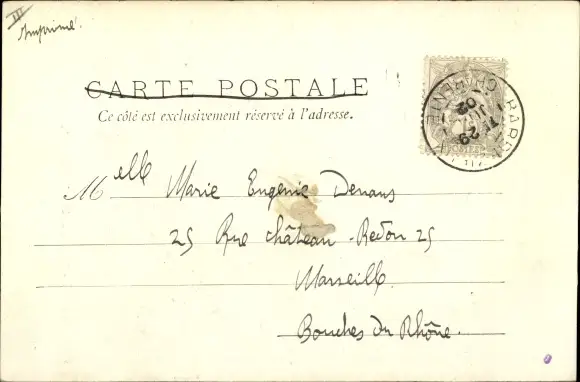 III
Imprimé
CARTE POSTALE
Ce côté est exclusivement réservé à l'adresse.
Melle Marie Eugenie Denans
25 Rue château-Redon 25
Marseille
Bouches du Rhône.
29
02